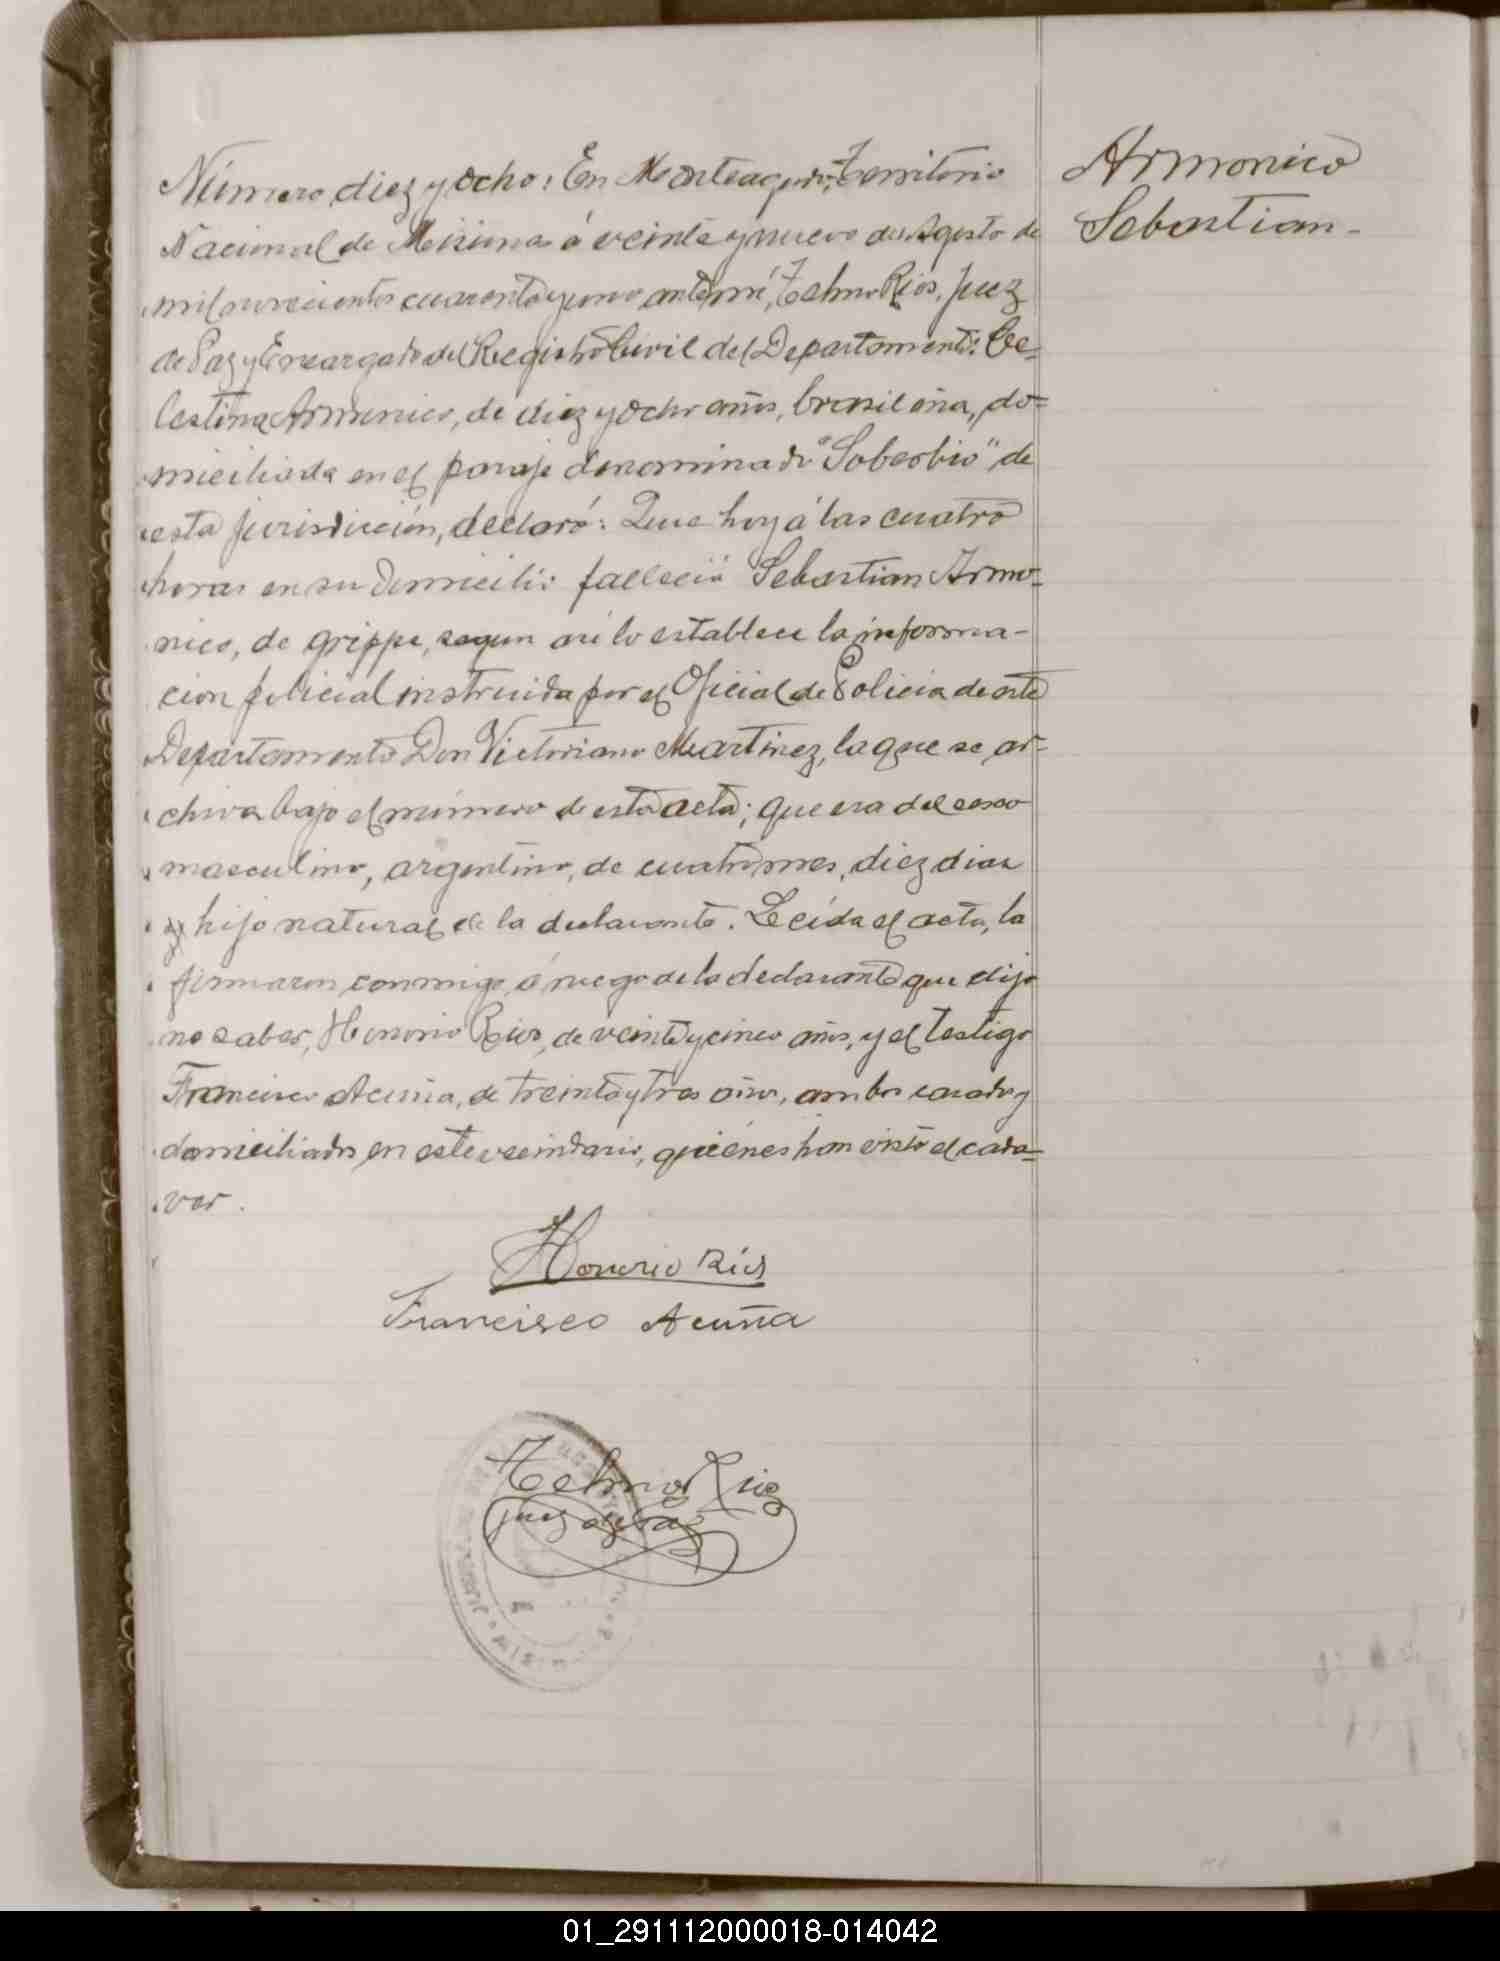 Número diez y ocho: En Monteagudo, Territorio
Nacional de Misiones á veinte y nueve de Agosto de
mil novecientos cuarenta y uno ante mí, Telmo Rios, Juez
de Paz y Encargado del Registro Civil del Departamento: Ce-
lestina Armonico, de diez y ocho años, brasileña, do-
miciliada en el paraje denominado "Soberbio" de
esta jurisdicción, declaró: Que hoy á las cuatro
horas en su domicilio falleció Sebastian Armo-
nico, de grippe, segun así lo establece la informa-
cion policial instruida por el Oficial de Policia de este
Departamento Don Victoriano Martinez, la que se ar-
chiva bajo el número de esta acta; que era del sexo
masculino, argentino, de cuatro meses, diez dias
y hijo natural de la declarante. Leída el acta, la
firmaron conmigo, á ruego de la declarante que dijo
no saber, Honorio Rios, de veinte y cinco años, y el testigo
Francisco Acuña, de treinta y tres años, ambos casados y
domiciliados en este vecindario, quiénes han visto el cada-
ver.
Armonico
Sebastian-
Honorio Ríos
Francisco Acuña
Telmo Rios
Juez de Paz
01_291112000018-014042